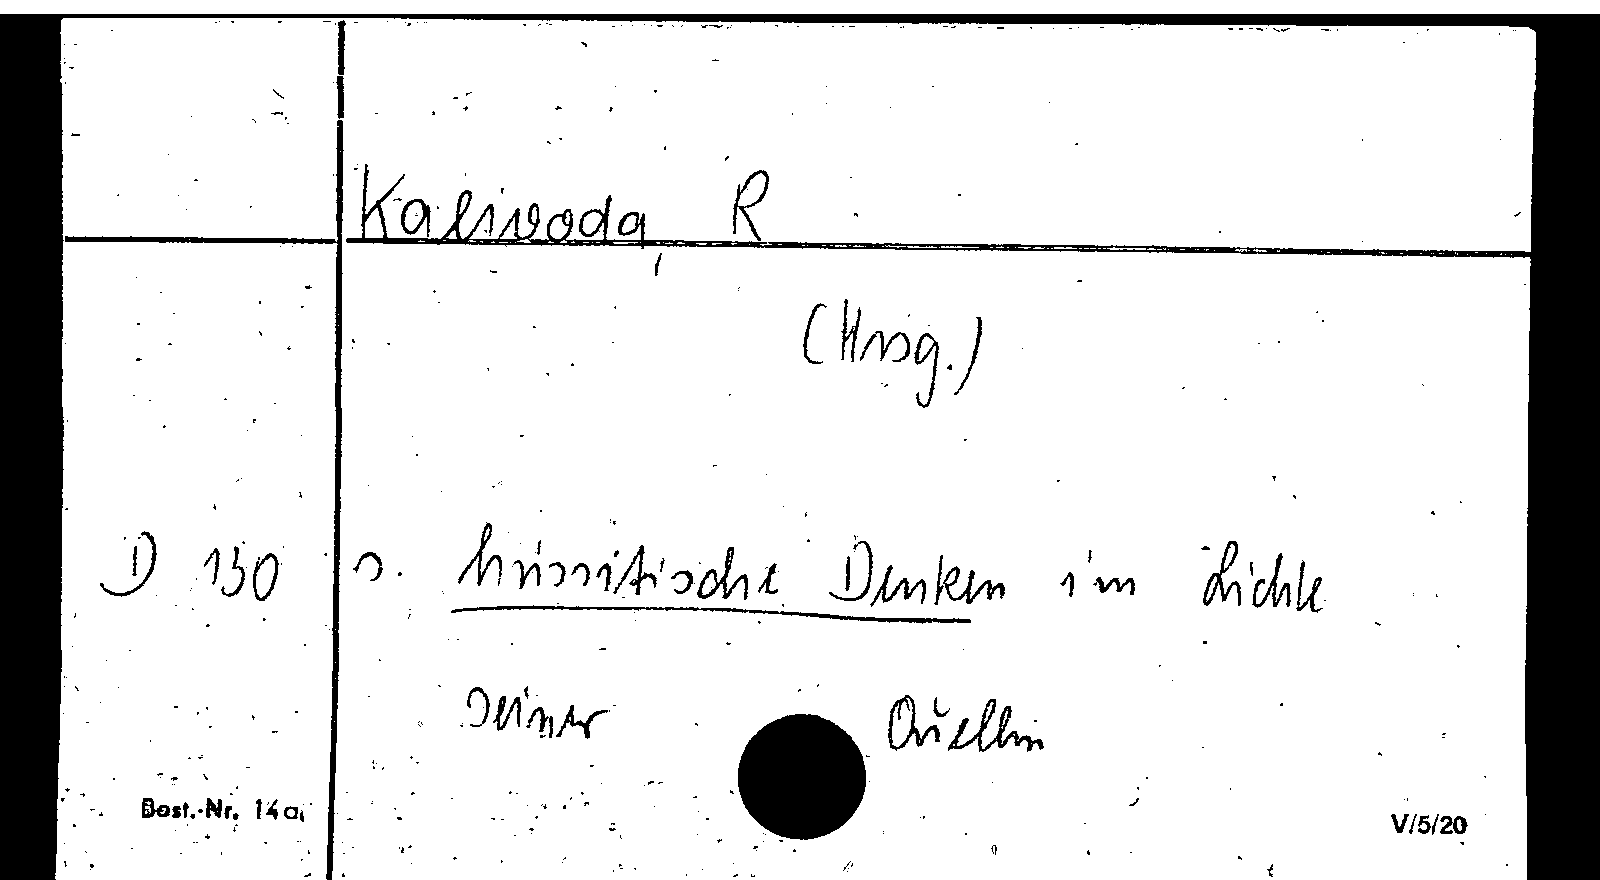 Kalivoda, R
(Hrsg.)
D 130 s. hussitische Denken im Lichte
seiner Quellen
Best.-Nr. 14a
V/5/20